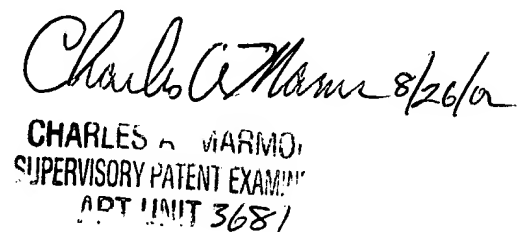 Charles A. Marmor 8/26/02
CHARLES A MARMOR
SUPERVISORY PATENT EXAMINER
ART UNIT 3681